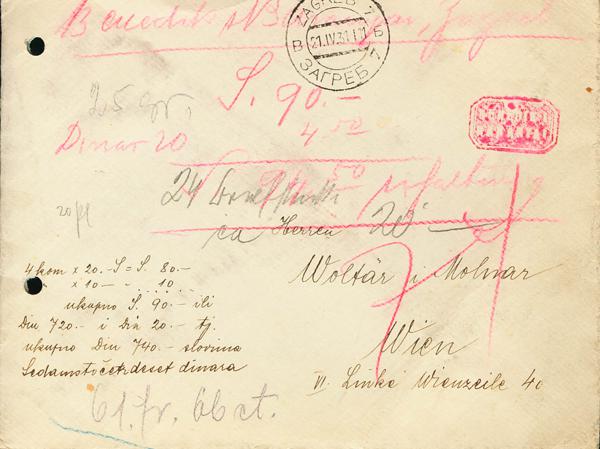 Zagreb
ZAGREB 1
B 21.IV.31 11 Б
ЗАГРЕБ 1
S. 90.-
25 gr.
4 50
Dinar 20
50
24
20 pf
ca Herren 20
4 kom x 20.- S = S. 80.-
x 10 — " . . 10.-
ukupno S. 90.- ili
Din 720.- i Din 20.- tj.
ukupno Din 740.- slovima
Sedamstočetrdeset dinara
Woltär i Molnar
Wien
VI. Linke Wienzeile 40
61. fr. 66 ct.